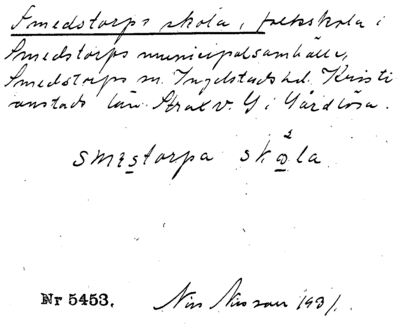 Smedstorps skola, folkskola i
Smedstorps municipalsamhälle,
Smedstorps sn. Ingelstads hd. Kristi
anstads län. Strax v. Y i Gärdlösa.
smestorpa skola
Nr 5453. Nils Nilsson 1931.